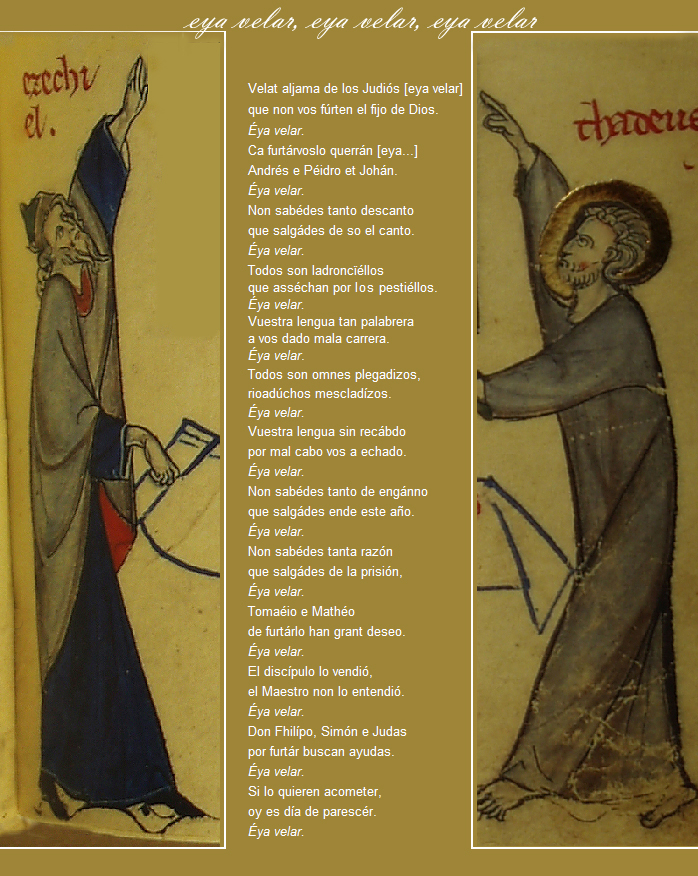 eya velar, eya velar, eya velar
ezechi
el.
Velat aljama de los Judiós [eya velar]
que non vos fúrten el fijo de Dios.
Éya velar.
Ca furtárvoslo querrán [eya...]
Andrés e Péidro et Johán.
Éya velar.
Non sabédes tanto descanto
que salgádes de so el canto.
Éya velar.
Todos son ladroncïéllos
que asséchan por los pestiéllos.
Éya velar.
Vuestra lengua tan palabrera
a vos dado mala carrera.
Éya velar.
Todos son omnes plegadizos,
rioadúchos mescladízos.
Éya velar.
Vuestra lengua sin recábdo
por mal cabo vos a echado.
Éya velar.
Non sabédes tanto de engánno
que salgádes ende este año.
Éya velar.
Non sabédes tanta razón
que salgádes de la prisión,
Éya velar.
Tomaéio e Mathéo
de furtárlo han grant deseo.
Éya velar.
El discípulo lo vendió,
el Maestro non lo entendió.
Éya velar.
Don Fhilípo, Simón e Judas
por furtár buscan ayudas.
Éya velar.
Si lo quieren acometer,
oy es día de parescér.
Éya velar.
thadeus